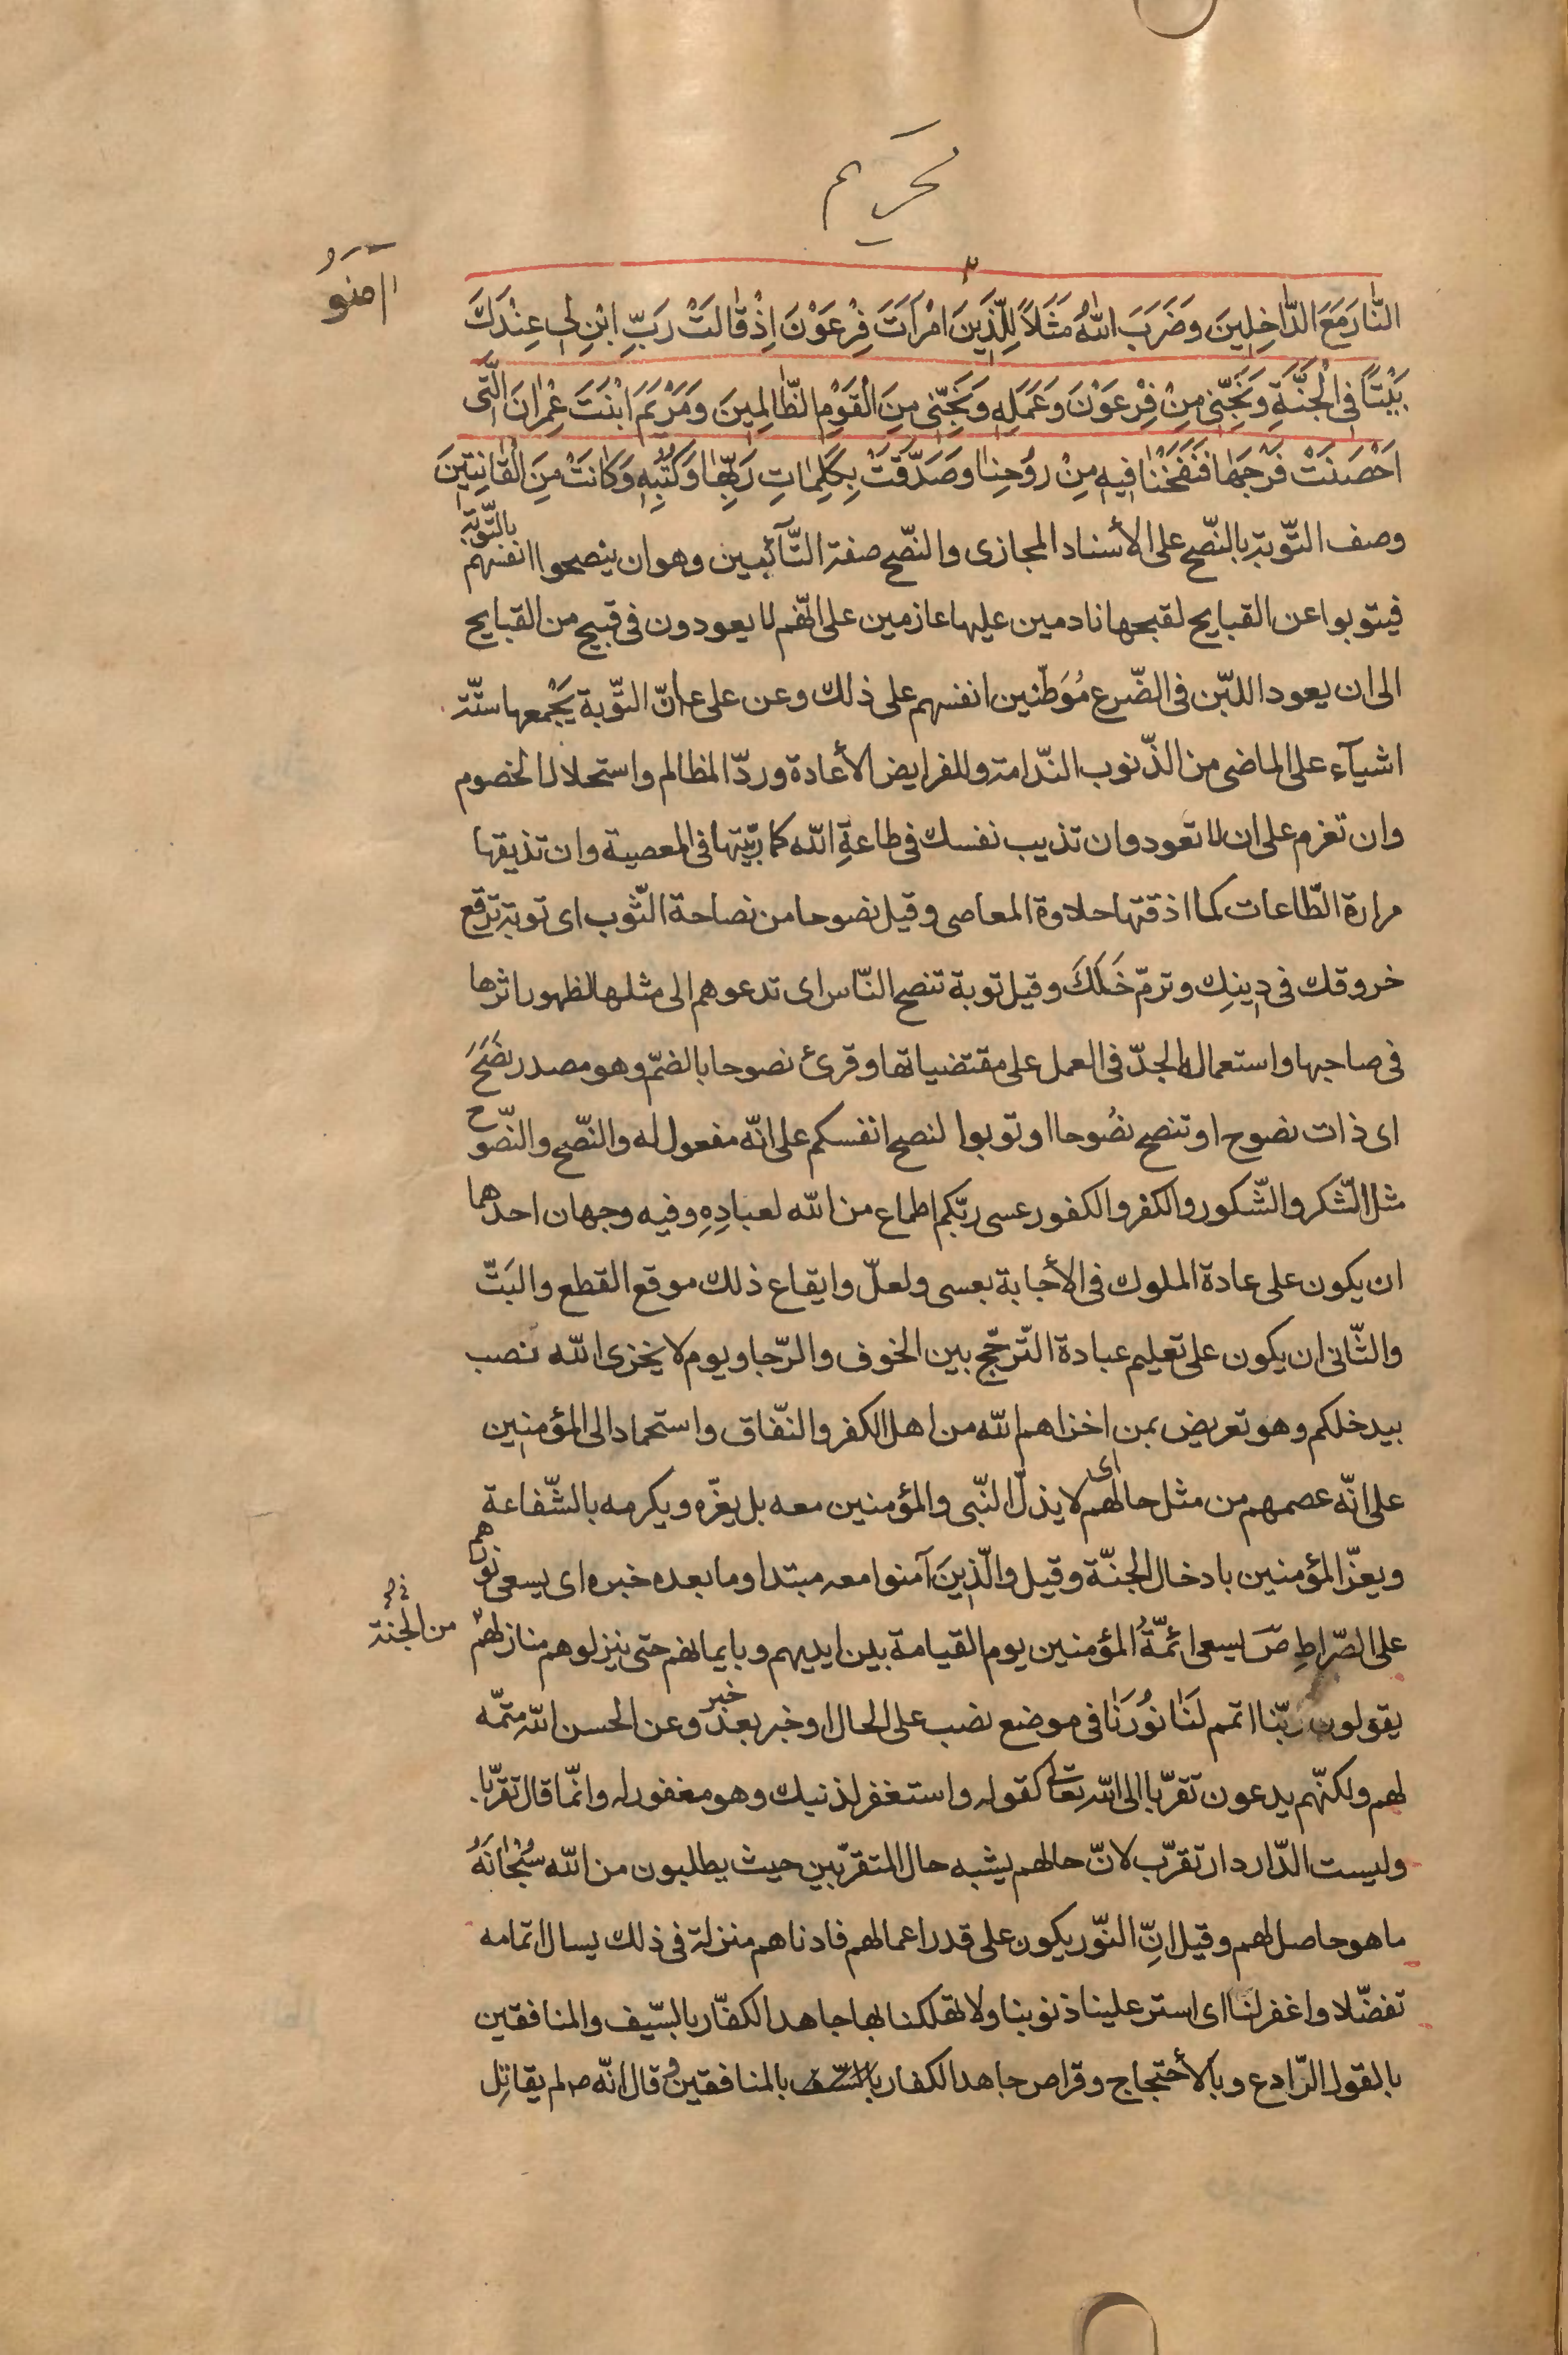 تحريم
النَّارَ مَعَ الدَّاخِلِينَ وَضَرَبَ اللّٰهُ مَثَلاً لِلَّذِينَ امْرَاَتَ فِرْعَوْنَ اِذْ قَالَتْ رَبِّ ابْنِ لِي عِنْدَكَ
آمنوُا
بَيْتًا فِي الْجَنَّةِ وَنَجِّنِي مِنْ فِرْعَوْنَ وَعَمَلِهِ وَنَجِّنِي مِنَ الْقَوْمِ الظَّالِمِينَ وَمَرْيَمَ ابْنَتَ عِمْرَانَ الَّتِي
اَحْصَنَتْ فَرْجَهَا فَنَفَخْنَا فِيهِ مِنْ رُوحِنَا وَصَدَّقَتْ بِكَلِمَاتِ رَبِّهَا وَكُتُبِهِ وَكَانَتْ مِنَ الْقَانِتِينَ
وصف التّوبة بالنّصح على الأسناد المجازى والنّصح صفة التّآئبين وهو ان ينصحوا انفسهم بالتّوبة
فيتوبوا عن القبايح لقبحها نادمين عليها عازمين على انّهم لا يعودون فى قبيح من القبايح
الى ان يعود اللبّن فى الضّرع مُوَطّنين انفسهم على ذلك وعن على ع انّ التّوبة يَجْمعها ستّة
اشيآء على الماضى من الذّنوب النّدامة وللفرايض الأعادة وردّ المظالم واستحلال الخصوم
وان تعزم على ان لا تعود وان تذيب نفسك فى طاعةِ اللّه كما ربّيتها فى المعصية وان تذيقها
مرارة الطّاعات كما اذقتها حلاوة المعاصى وقيل نصوحا من نصاحة الثّوب اى توبة ترقع
خروقك فى دِينِك وترمّ خَلَلَكَ وقيل توبة تنصح النّاس اى تدعوهم الى مثلها لظهور اثرها
فى صاحبها واستعماله الجدّ فى العمل على مقتضياتها وقرئ نصوحا بالضّم وهو مصدر نصَحَ
اى ذات نصوح او تنصح نصُوحا او توبوا لنصح انفسكم على انّه مفعول له والنّصح والنّصوح
مثل الشّكر والشّكور والكفر والكفور عسى ربّكم اطماع من اللّه لعبادِهِ وفيه وجهان احدهما
ان يكون على عادة الملوك فى الأجابة بعسى ولعلّ وايقاع ذلك موقع القطع والبَتّ
والثّانى ان يكون على تعليم عباده التّرجّح بين الخوف والرّجا ويوم لا يخزى اللّه نصب
بيدخلكم وهو تعريض بمن اخزاهم اللّه من اهل الكفر والنّفاق واستحماد الى المؤمنين
على انّه عصمهم من مثل حالهم اى لا يذلّ النّبى والمؤمنين معه بل يعزّه ويكرمه بالشّفاعة
ويعزّ المؤمنين بادخال الجنّة وقيل والّذِينَ آمنوا معه مبتدا وما بعده خبره اى يسعى نورهم
على الصّراطِ صَ يسعى ائمّةُ المؤمنين يوم القيامة بين ايديهم وبايمانهم حتى ينزلوهم منازلهم
من الجنة
يقولون ربّنا اتمم لَنَا نُورَنَا فى موضع نصب على الحال او خبر بعد خبر وعن الحسن اللّه متمّه
لهم ولكنّهم يدعون تقرّبا الى اللّه تعالى كقوله واستغفر لذنبك وهو مغفور له وانّما قال تقرّبا
وليست الدّار دار تقرّب لانّ حالهم يشبه حال المتقرّبين حيث يطلبون من اللّه سُبْحانَهُ
ما هو حاصل لهم وقيل انِّ النّور يكون على قدر اعمالهم فادناهم منزلة فى ذلك يسال اتمامه
تفضّلا واغفر لنا اى استر علينا ذنوبنا ولا تهلكنا بها جاهد الكفّار بالسّيف والمنافقين
بالقول الرّادع وبالأحتجاج وقرا ص جاهد الكفار بالمنافقين وقال انّه ص لم يقاتِل